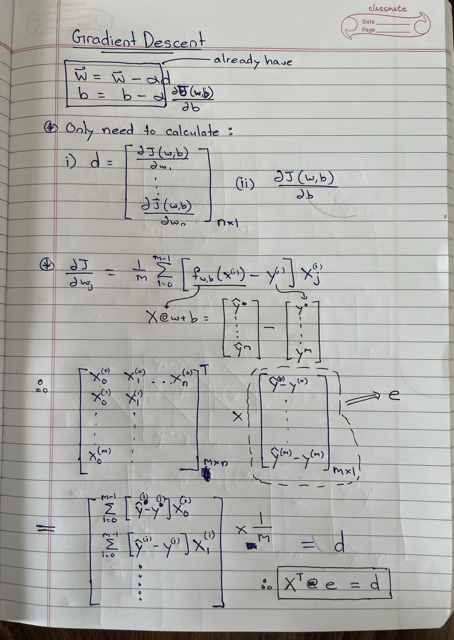 classmate
Date
Page
Gradient Descent
already have
w⃗ = w⃗ - αd
b = b - α ∂J(w,b)/∂b
* Only need to calculate :
i) d = [ ∂J(w,b)/∂w₁ ⋮ ∂J(w,b)/∂wₙ ] n×1 (ii) ∂J(w,b)/∂b
* ∂J/∂wⱼ = 1/m Σ_{i=0}^{m-1} [ f_{w,b}(x^{(i)}) - y^{(i)} ] X_j^{(i)}
X@w+b = [ ŷ⁰ ⋮ ŷᵐ ] - [ y⁰ ⋮ yᵐ ]
∴ [ X₀^{(0)} X₁^{(0)} ... Xₙ^{(0)} X₀^{(1)} X₁^{(1)} ⋮ X₀^{(m)} ]ᵀ m×n × [ ŷ^{(0)} - y^{(0)} ⋮ ŷ^{(m)} - y^{(m)} ] m×1 ⇒ e
= [ Σ_{i=0}^{m-1} [ŷ^{(i)} - y^{(i)}] X₀^{(i)} Σ_{i=0}^{m-1} [ŷ^{(i)} - y^{(i)}] X₁^{(i)} ⋮ ] × 1/m = d
∴ Xᵀ@ e = d